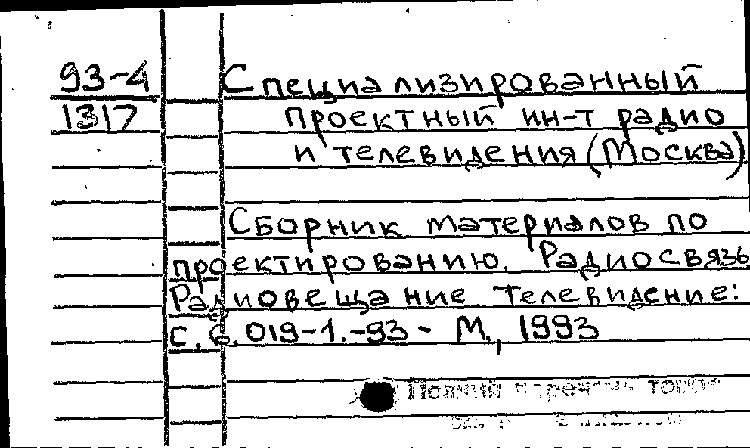 93-4 Специализированный
1317 проектный ин-т радио
и телевидения (Москва)
Сборник материалов по
проектированию. Радиосвязь
Радиовещание Телевидение:
С.6.019-1.-93 - М., 1993
Полный перечень томов